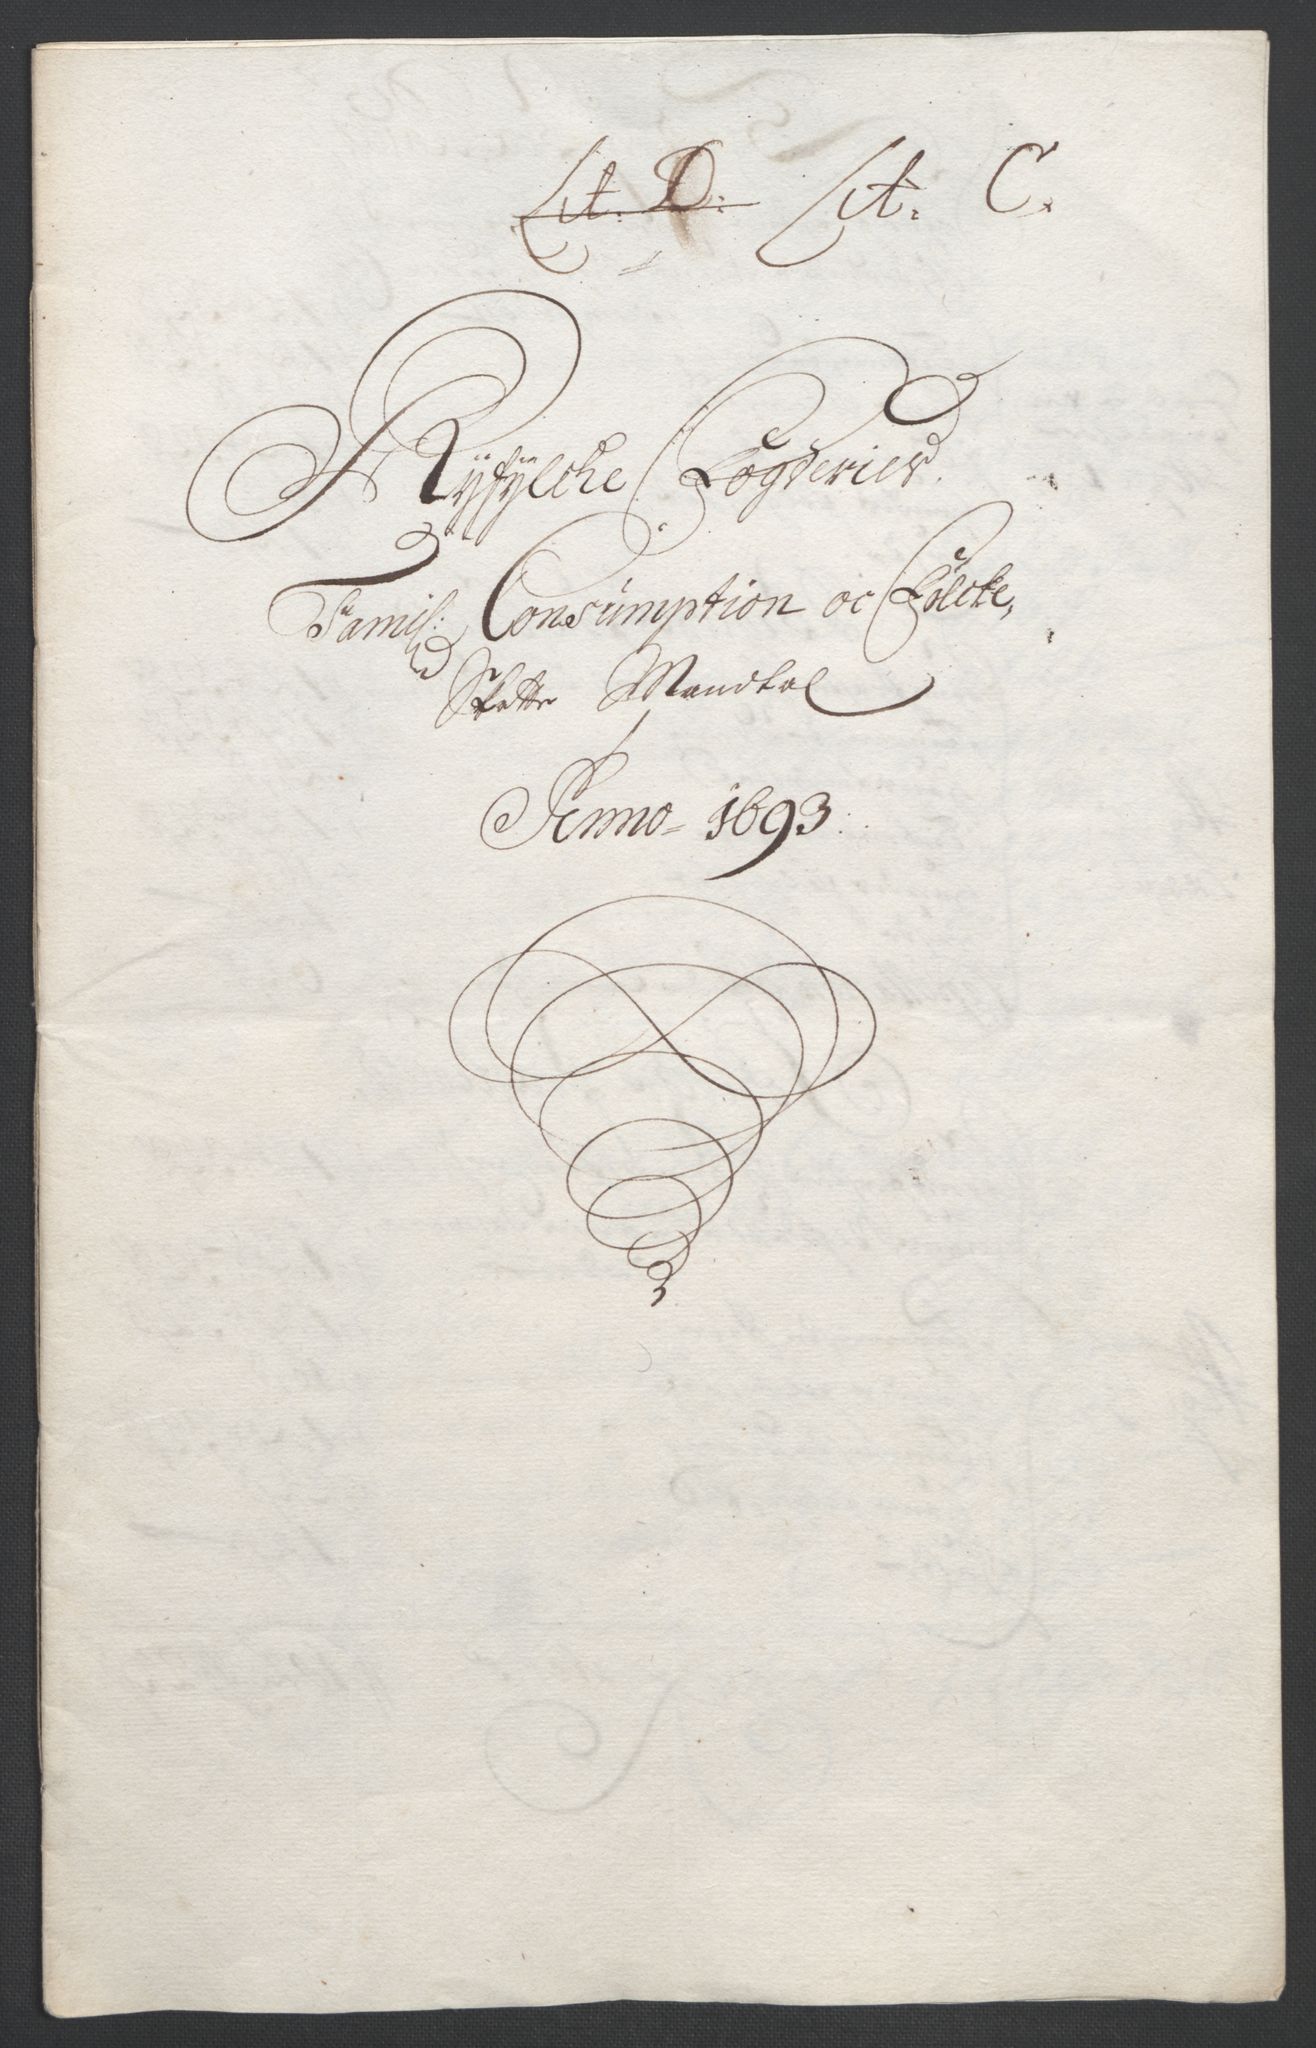 Lit. D: Lit. C.
Ryfylcke Fogderies
Famil: Consumption oc Folcke,
Skatte Mandtal
Anno 1693